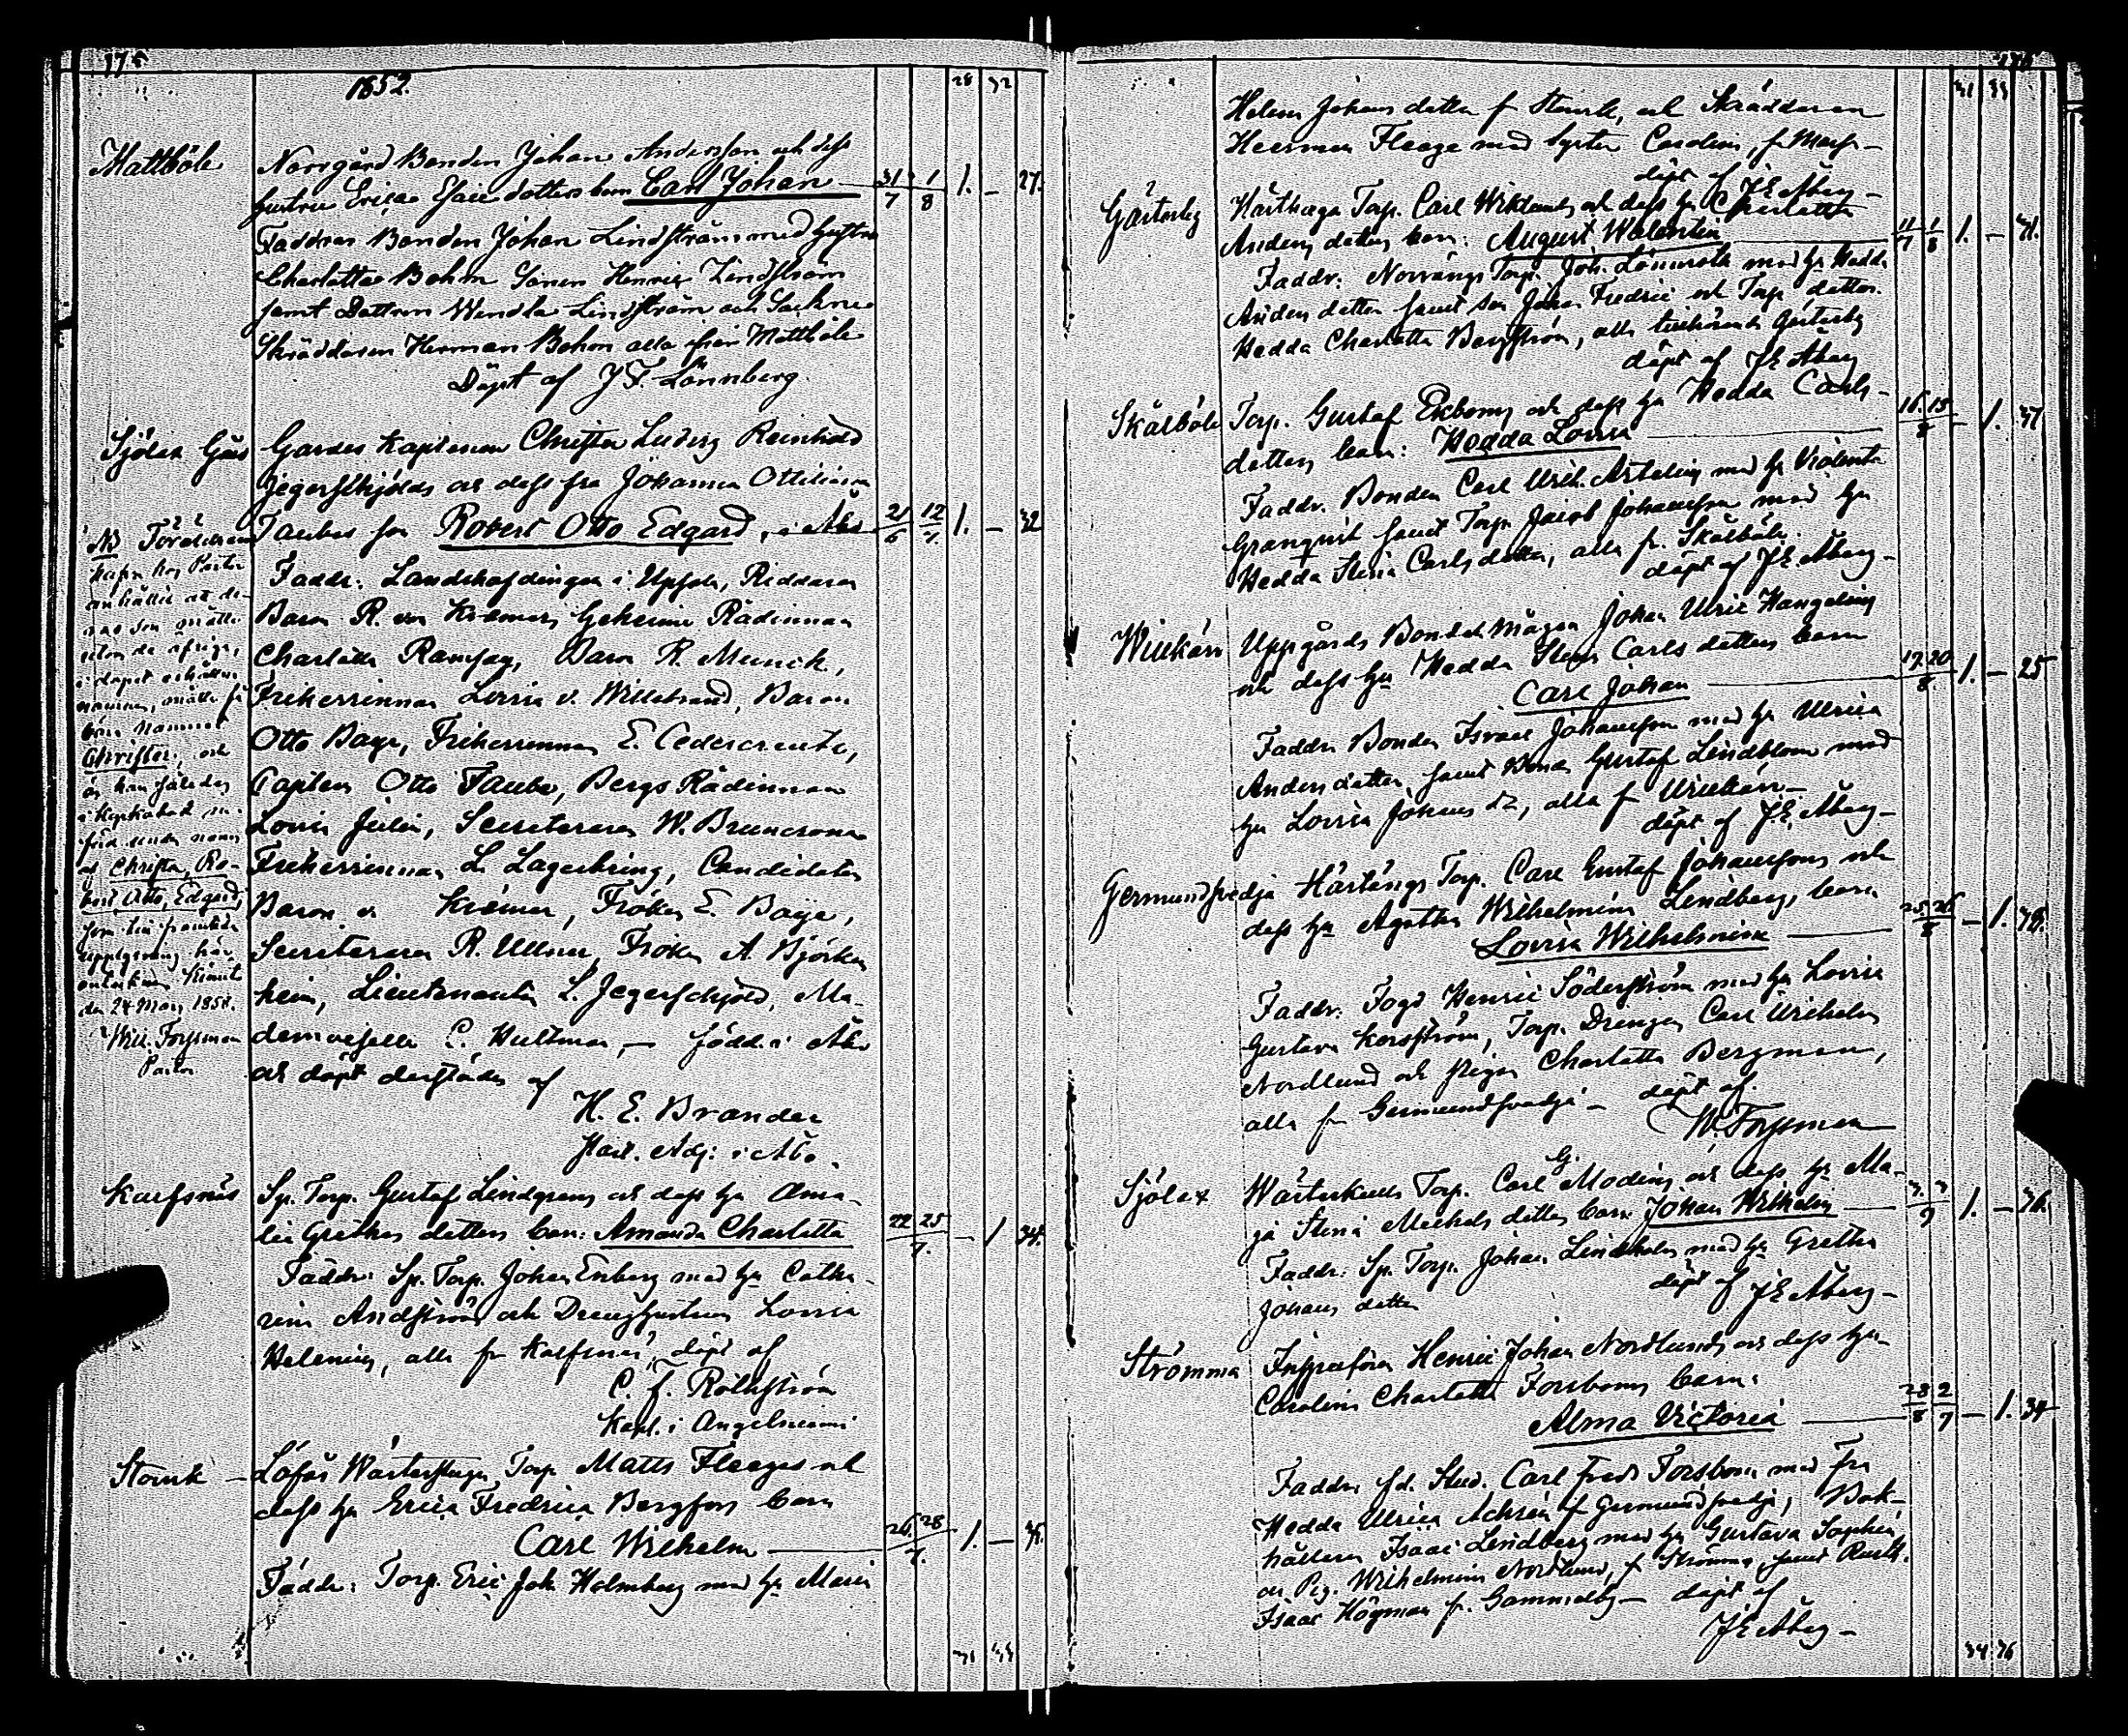 175
1852.
28 32
Mattböle
Norrgård Bonden Johan Andersson och dess
hustru Ericae Esaie dotters barn Carl Johan 31/7 1/8 1. – 27.
Faddrar Bonden Johan Lindström med hustru
Charlotta Bohm Sonen Henric Lindström
samt Dottren Wendla Lindström och Sockne
Skräddaren Herman Bohm alla från Mattböle
Döpt af J F. Lönnberg.
Sjölax Gård
Gardes Kaptenen Christer Ludvig Reinhold
Jegerskjölds och dess fru Johanna Ottiliana
Taubes son Robert Otto Edgard, i Åbo 21/6 12/7 1. – 32
Faddr: Landshöfdingen i Upsala, Riddaren
Baron R. von Kræmer, Geheime Rådinnan
Charlotta Ramsay, Baron R. Munck,
Friherrinnan Lovisa v. Willebrand, Baron
Otto Baye, Friherrinnan E. Cedercreutz,
Capten Otto Taube, Bergs Rådinnan
Lovisa Julin, Secreteraren W. Bruncrona
Friherrinnan L. Lagerbring, Candidaten
Baron v. Kræmer, Fröken E. Baye,
Secreteraren R. Ullner, Fröken A. Björken
heim, Lieutenanten L. Jegerschjöld, Ma-
demoiselle C. Hultman, – född i Åbo
och döpt derstädes af
H. E. Brander
Past. Adj: i Åbo.
NB Föräldrarna
hafva hos Pastor
anhållit att de-
ras son måtte
utom de öfriga,
i dopet erhållna
namnen, måtte få
bära namnet
Christer, och
är han således
i Kyrkobok in-
förd under namn
af Christer, Ro-
bert, Otto, Edgard,
som till framtida
upplysning här
antecknas. Kimito
den 24 Mars 1858.
Will. Forssman
Pastor
Kalfsnäs
Sp. Torp. Gustaf Lindgrens och dess hu Ama-
lia Grethas dotters barn: Amanda Charlotta 22 25/7. – 1 34.
Faddr: Sp. Torp. Johan Enberg med hu Catha-
rina Andström och Drenghustrun Lovisa
Helenius, alla fr Kalfsnäs, döpt af
C. J. Rothström
Kapl. i Angelniemi
Storvik –
Löfås Wästerstuga Torp Matts Fleeges och
dess hu Erica Fredrica Bergfors barn
Carl Wilhelm 26. 28/7. 1. –
Faddr: Torp. Eric Joh Holmberg med hu Maria
31 33
31 33
Helena Johans dotter fr Storvik, och Skräddaren
Herrman Fleege med Syster Carolina, fr
döpt af J E Åberg –
Gästerby
Torp. Carl Wiklunds och dess hu Charlotta
Anders dotters barn: August Walentin 11/7 1/8 1. – 41.
Faddr: Norrängs Torp. Joh. Lönnroth med hu Hedda
Anders dotter samt son Johan Fredric och Torp. dotter
Hedda Charlotta Bergström, alla tillhörande Gästerby
döpt af J E Åberg
Skälböle
Torp. Gustaf Ekboms och dess hu Hedda Carls-
dotters barn: Hedda Lovisa 16. 18/8 – 1. 41
Faddr. Bonden Carl Wilh. Artelius med hu Violenta
Granqvist samt Torp. Jacob Johansson med hu
Hedda Stina Carls dotter, alla fr. Skälböle.
döpt af J E Åberg –
Wiskärr
Uppgårds Bonde Mågen Johan Ulric Hangelius
och dess hu Hedda Stina Carls dotters barn
Carl Johan 17. 20/8. 1. – 25
Faddr. Bonden Israel Johansson med hu Ulrica
Anders dotter, samt Bond. Gustaf Lindblom med
hu Lovisa Johans dr, alla fr Wiskärr –
döpt af J. E. Åberg –
Germundsvedja
Hästängs Torp. Carl Gustaf Johanssons och
dess hu Agatha Wilhelmina Lindberg, barn
Lovisa Wilhelmina 25. 26/8 – 1.
Faddr: Fogd Henric Söderström med hu Lovisa
Gustava Korsström, Torp. Drengen Carl Wilhelm
Nordlund och pigan Charlotta Bergman,
alla fr Germundsvedja – döpt af.
W. Forssman
Sjölax
Torp. Carl G. Modins och dess hu Ma-
ja Stina Michels dotters barn Johan Wilhelm 3. 7/9 1. – 36.
Faddr: Sp. Torp. Johan Lindholm med hu Gretha
Johans dotter
döpt af J E Åberg –
Strömma
Inspectoren Henric Johan Nordlunds och dess hu
Carolina Charlotta Forsboms barn:
Alma Victoria 28/8 2/9 – 1. 34
Faddr: fd. Stud. Carl Fredr Forsbom med Fru
Hedda Ulrica Achrén fr Germundsvedja, Bok-
hållaren Isaac Lindberg med hu Gustava Sophia
och Pig. Wilhelmina Nordlund, fr Strömma samt Rusth.
Isaac Högman fr. Gammelby – döpt af
J E Åberg –
34 36